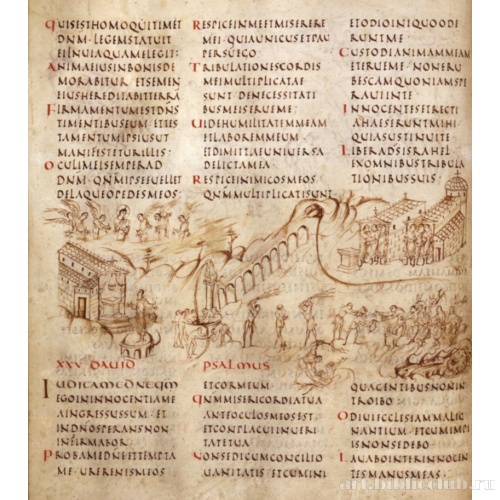 QUISESTHOMOQUITIMET
DNM LEGEMSTATUIT
EIINUIAQUAMELEGIT:
ANIMAEIUSINBONISDE
MORABITUR ETSEMEN
EIUSHEREDITABITTERRA
FIRMAMENTUMESTDNS
TIMENTIBUSEUM ETTES
TAMENTUMIPSIUSUT
MANIFESTETURILLIS:
OCULIMEISEMPERAD
DNM QNMIPSEEUELLET
DELAQUEOPEDESMEOS:
RESPICEINMEETMISERERE
MEI QUIAUNICUSETPAU
PERSUEGO:
TRIBULATIONESCORDIS
MEIMULTIPLICATAE
SUNT DENECESSITATI
BUSMEISERUEME:
UIDEHUMILITATEMMEAM
ETLABOREMMEUM
ETDIMITTAEUNIUERSA
DELICTAMEA:
RESPICEINIMICOSMEOS
QNMMULTIPLICATISUNT
ETODIOINIQUOODE
RUNTME:
CUSTODIANIMAMMEAM
ETERUEME NONERU
BESCAMQUONIAMSPE
RAUIINTE:
INNOCENTESETRECTI
ADHAESERUNTMIHI
QUIASUSTINUITE:
LIBERADSISRAHEL
EXOMNIBUSTRIBULA
TIONIBUSSUIS:
XXV DAVID PSALMUS
IUDICAMEDNEQNM
EGOININNOCENTIAME
AINGRESSUSSUM ET
INDNOSPERANSNON
INFIRMABOR:
PROBAMEDNEETTEMPTA
ME URERENESMEOS
ETCORMEUM:
QNMMISERICORDIATUA
ANTEOCULOSMEOSEST
ETCONPLACUIINUERI
TATETUA:
NONSEDICUMCONCILIO
UANITATIS ETCUMINI
QUAGENTIBUSNONIN
TROIBO:
ODIUIECCLESIAMMALIG
NANTIUM ETCUMIMPI
ISNONSEDEBO:
LAUABOINTERINNOCEN
TESMANUSMEAS
art.biblioclub.ru